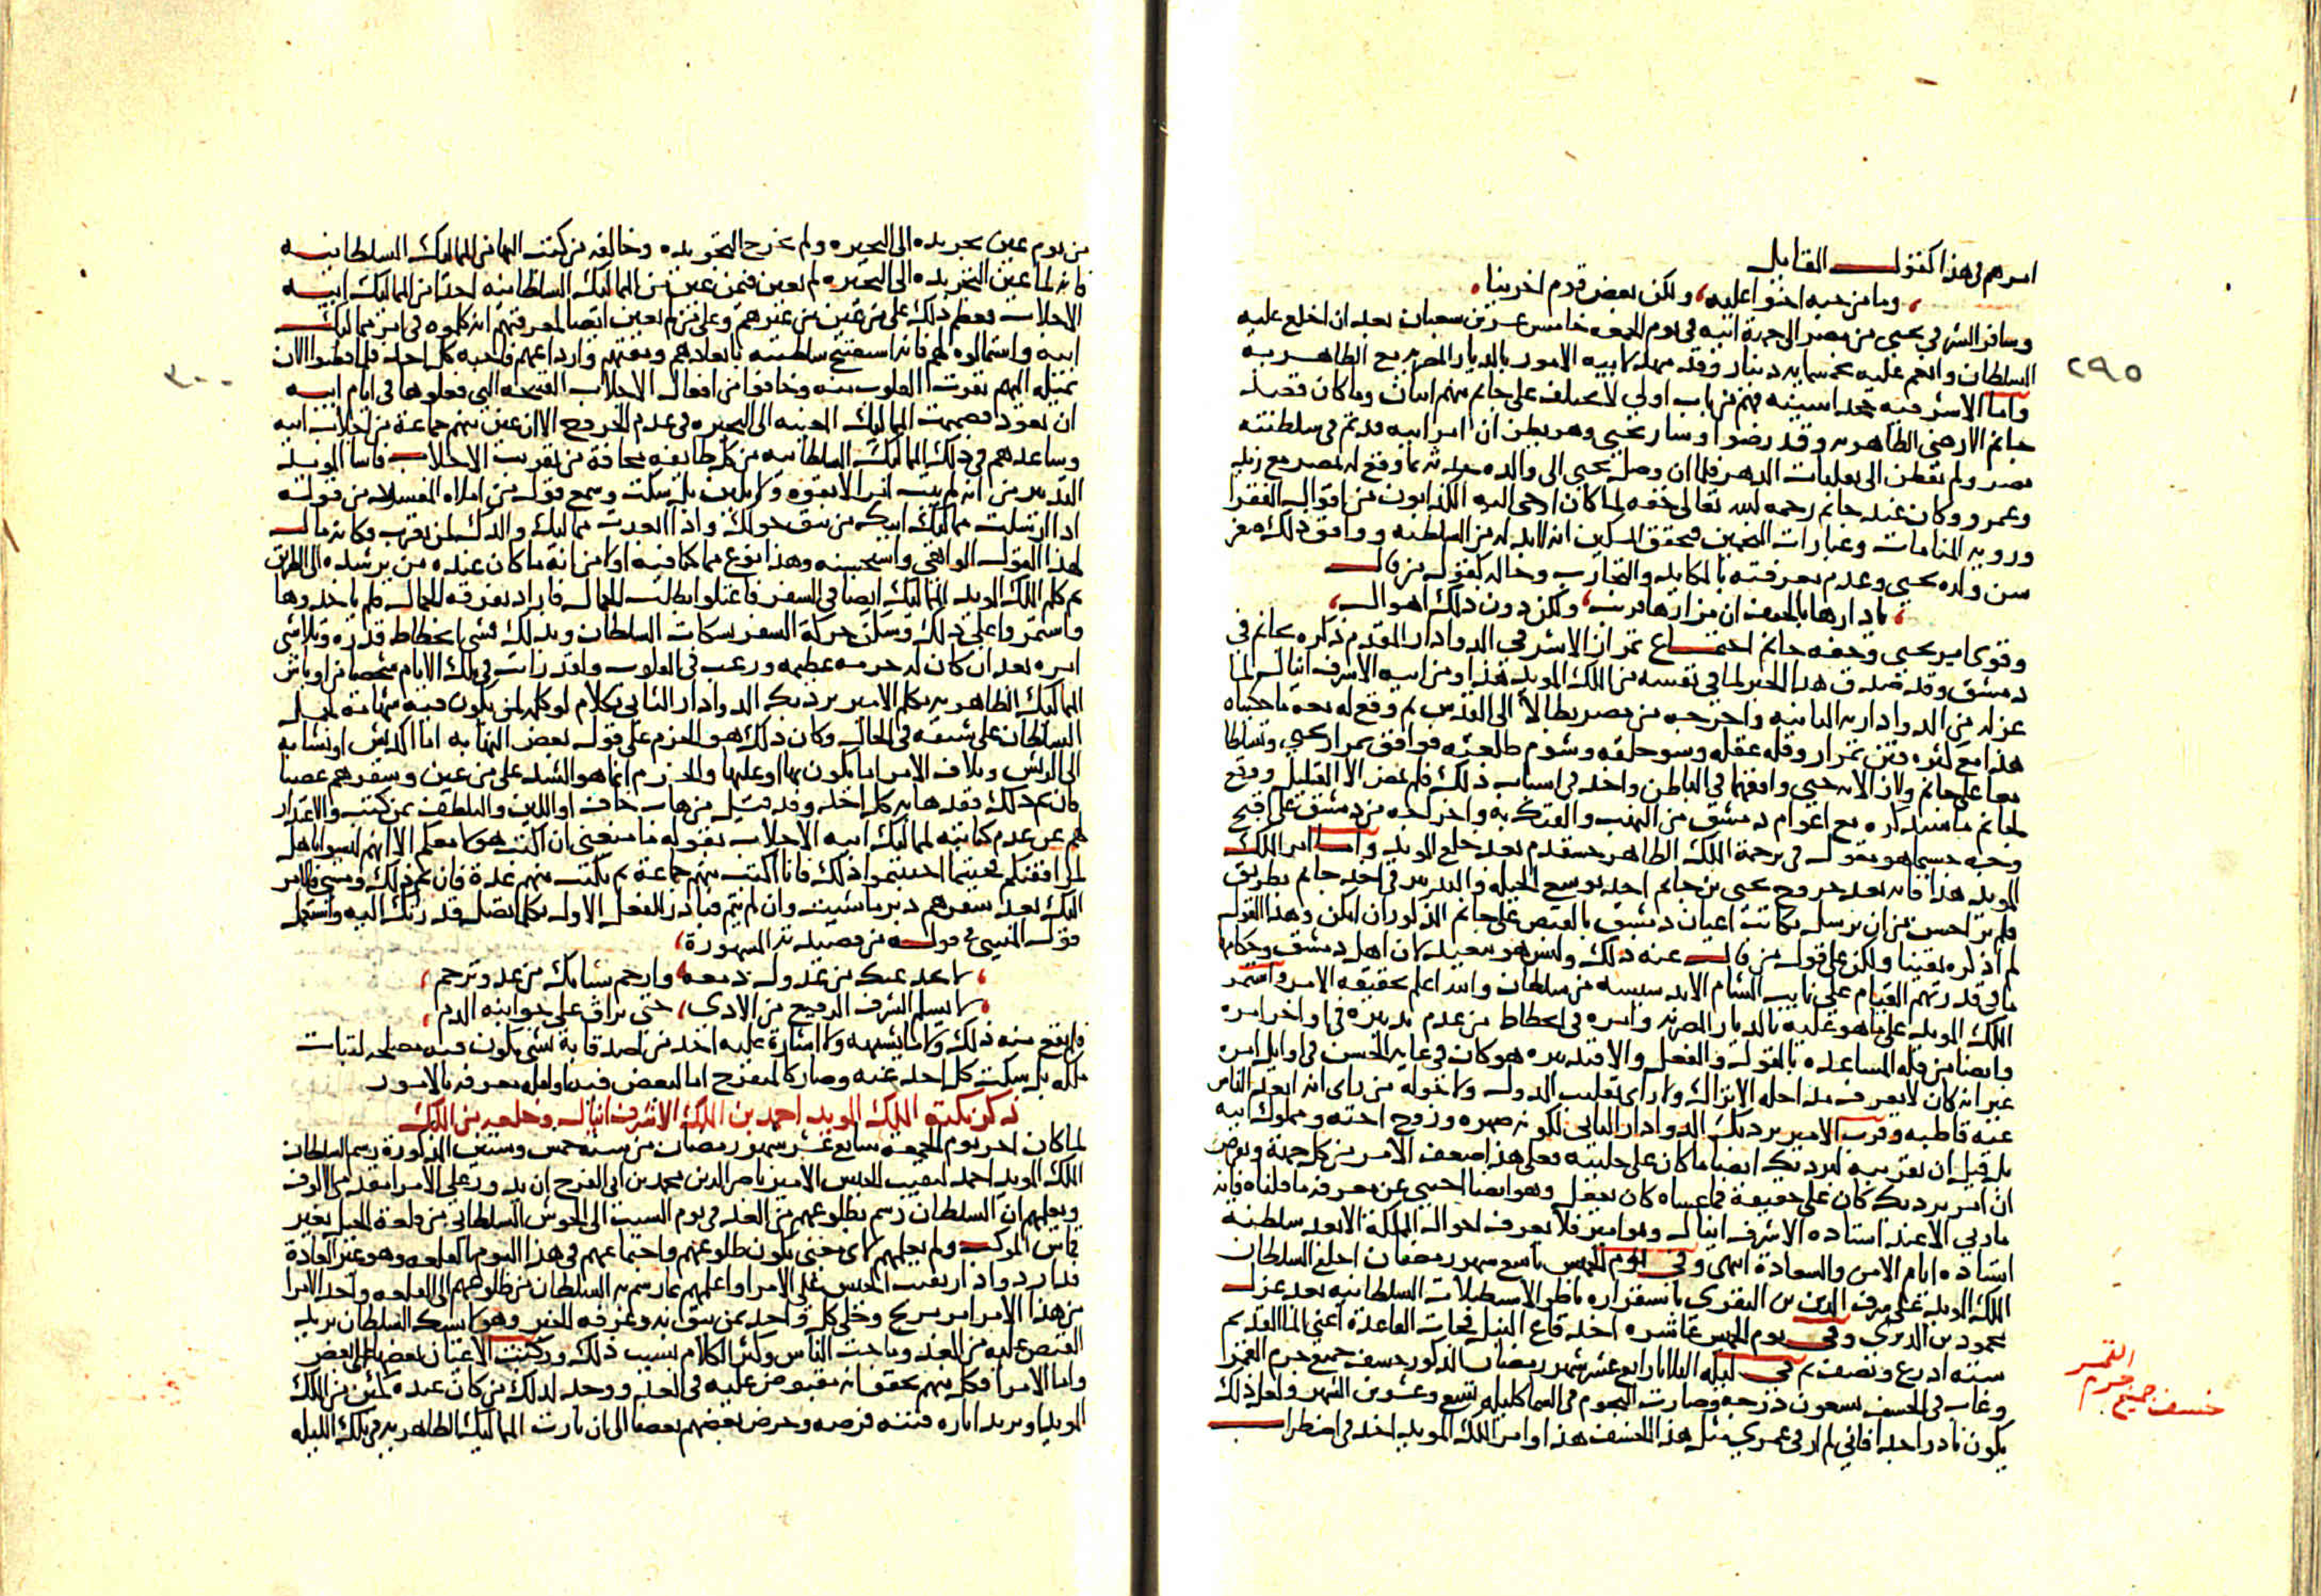 امرهم في هذا كقول القايل
وما من حبه احنوا عليه ولكن بعض قوم اخرينا
وسافر الشرفي يحيى من مصر الى جهة ابيه في يوم الجمعه خامس عشرين شعبان بعد ان اخلع عليه
السلطان وانعم عليه بخمسمايه دينار وقد مهد لابيه الامور بالديار المصريه مع الظاهريه
٢٩٥
واما الاشرفيه فهم من باب اولى لا يختلف على جانم منهم اثنان وما كان قصد
جانم الا رضى الظاهريه وقد رضوا وسار يحيى وهو يظن ان امر ابيه قد تم في سلطنته
بمصر ولم يفطن الى تقلبات الدهر فلما ان وصل يحيى الى والده حدثه بما وقع له بمصر مع زيد
وعمرو وكان عند جانم رحمه الله تعالى خفه لما كان اوحى اليه الكذابون من اقوال الفقرا
ورويه المنامات وعبارات المنجمين فتحقق المسكين انه لابد له من السلطنه ووافق ذلك صغر
سن ولده يحيى وعدم معرفته بالمكايد والتجارب وحاله كقول من قال
يا دارها بالخيف ان مزارها قريب ولكن دون ذلك اهوال
وقوى امر يحيى وخفه جانم اجتماع تمراز الاشرفي الدوادار المقدم ذكره بجانم في
دمشق وقد صدق هذا الخبر لما في نفسه من الملك المويد هذا ومن ابيه الاشرف اينال لما
عزله من الدواداريه الثانيه واخرجه من مصر بطالا الى القدس ثم وقع له بعد ما حكيناه
هذا مع كثره فتن تمراز وقله عقله وسو خلقه وشوم طلعته فوافق تمراز يحيى وتسلطا
معا على جانم ولازالا به حتى وافقهما في الباطن واخذ في اسباب ذلك فلم يمض الا القليل ووقع
لجانم ما سنذكره مع اعوام دمشق من النهب والفتك به واخراجه من دمشق على اقبح
وجه حسبما هو مقول في ترجمة الملك الظاهر خشقدم بعد خلع المويد واما امر الملك
المويد هذا فانه بعد خروج يحيى بن جانم اخذ يوسع الحيله والتدبير في اخذ جانم بطريق
فلم ير احسن من ان يرسل بكاتب اعيان دمشق بالقبض على جانم المذكور ان امكن وهذا القول
لم اذكره يقينا ولكن على قول من قال عنه ذلك وليس هو ببعيد لان اهل دمشق وحكامها
ما في قدرتهم القيام على نايب الشام الا بدسيسه من سلطان والله اعلم بحقيقه الامر واستمر
الملك المويد على ما هو عليه بالديار المصريه وامره في انحطاط من عدم تدبيره في اواخر امره
وايضا من قله المساعده بالقول والفعل والا فتدبيره هو كان في غايه الحسن في اوايل امره
غير انه كان لا يعرف مداخله الاتراك ولا راى تقلب الدول ولا حوله من راى انه ابعد الناس
عنه قاطبه وقرب الامير بردبك الدوادار الثاني لكونه صهره وزوج اخته ومملوك ابيه
بل قيل ان تقريبه لبردبك ايضا ما كان على جليته فعلى هذا اضعف الامر من كل جهة
ان امر بردبك كان على حقيقة فما عساه كان يفعل وهو ايضا اجنبي عن معرفه ما قلناه فانه
ما ربي الا عند استاده الاشرف اينال وهو امير فلا يعرف احوال المملكة الا بعد سلطنة
استاده ايام الامن والسعادة انتهى وفي يوم الخميس تاسع شهر رمضان اخلع السلطان
الملك المويد على شرف الدين بن البقري باستقراره ناظر الاسطبلات السلطانيه بعد عزل
محمود بن الديري وفي يوم الخميس عاشره اخذ قاع النيل فجات القاعدة اعني الما القديم
سته اذرع ونصف ثم في ليله الثلاثا رابع عشر شهر رمضان المذكور خسف جميع جرم القمر
وغاب في الخسف تسعون درجه وصارت النجوم في السما كليله تسع وعشرين الشهر ولعل ذلك
يكون نادر احدا فاني لم ار في عمري مثل هذا الخسف هذا وامر الملك المويد اخذ في اضطراب
خسف جميع جرم القمر
من يوم عين تجريده الى البحيره ولم تخرج التجريده وخالفه من كتب اليها من المماليك السلطانيه
فانه لما عين التجريده الى البحيره لم يعين فيمن عين من المماليك السلطانيه احدا من المماليك ابيه
الاجلاب فعظم ذلك على من عين من غيرهم وعلى من لم يعين ايضا لمعرفتهم انه كلموه في امر مماليك
ابيه واستمالوه لهم فانه استفتح سلطنته بابعادهم ومقتهم وارداعهم فاحبه كل احد فلما فطنوا الان
٣٠٠
بميله اليهم نفرت القلوب منه وخافوا من افعال الاجلاب القبيحه التي فعلوها في ايام ابيه
ان تعود فصممت المماليك المعينه الى البحيره في عدم الخروج الا ان عين منهم جماعة من اجلاب ابيه
وساعدهم في ذلك المماليك السلطانيه من كل طايفه مخافة من تقريب الاجلاب فاسا المويد
التدبير من انه لم يبت امرا لا بقوه ولا بلين بل سكت وسمع قول من املاه المفسدين من قوله
اذا ارسلت مماليك ابيك من يبق حولك واذا ابعدت مماليك والدك لمن تقرب وكانه مال
لهذا القول الواهي واستحسنه وهذا نوع مما كنا فيه اولا من انه ما كان عنده من يرشده الى الطريق
ثم كلم الملك المويد المماليك ايضا في السفر فاعتلوا بطلب الجمال فاراد تفرقه الجمال فلم ياخذوها
واستمروا على ذلك وسكن حركة السفر بسكات السلطان وبذلك فشى انحطاط قدره وتلاشى
امره بعد ان كان له حرمه عظيمه ورعب في القلوب ولقد رايت في تلك الايام شخصا من اوباش
المماليك الظاهريه يكلم الامير بردبك الدوادار الثاني بكلام لو كان لمن يكون فيه شهامة لحمل
السلطان على شنقه في الحال وكان ذلك هو الحزم على قول بعض النهابه اما اكديش او نشابه
الى الريش وتلاف الامر اما يكون بها او عليها والحزم انما هو الشد على من عين وسفرهم غصبا
فان تم ذلك فقد هابه كل احد وقد قيل من هاب خاف او اللين والتلطف بمن كتب والاعتذار
لهم عن عدم كتابته لمماليك ابيه الاجلاب بقوله ما منعني ان اكتب هولا معكم الا انهم ليسوا باهل
لمرافقتكم فحيثما احببتموا ذلك فانا اكتب منهم جماعة ثم يكتب منهم عدة فان تم ذلك ومشى فالامر
اليك بعد سفرهم دبر ما شيت وان لم يتم فبادر للفعل الاول بكلما تصل قدرتك اليه واستعمل
قول المتنبي في قوله من قصيدته المشهورة
لا يخدعنك من عدو دمعه وارحم شبابك من عدو ترحم
لا يسلم الشرف الرفيع من الاذى حتى يراق على جوانبه الدم
فلم يقع منه ذلك ولا ما يشبهه ولا اشارة عليه احد من اصدقايه بشي يكون فيه مصلحه لثبات
ملكه بل سكت كل احد عنه وصار كالمتفرج اما لبعض فيه او لقله معرفه بالامور
ذكر نكبة الملك المويد احمد بن الملك الاشرف اينال وخلعه من الملك
لما كان اخر يوم الجمعة سابع عشر شهر رمضان من سنة خمس وستين المذكورة رسم السلطان
الملك المويد احمد لنقيب الجيش الامير ناصر الدين محمد بن ابي الفرج ان يدور على الامرا مقدمي الالوف
ويعلمهم ان السلطان رسم بطلوعهم من الغد في يوم السبت الى الحوش السلطاني من قلعة الجبل بغير
قماش الموكب ولم يعلمهم لاي معنى يكون طلوعهم واجتماعهم في هذا اليوم بالقلعه وهو غير العادة
فدار دوادار نقيب الجيش على الامرا واعلمهم بما رسم به السلطان من طلوعهم الى القلعه واخذ الامرا
من هذا الامر امر مريج وخلى كل واحد بمن يثق به وعرفه الخبر وهو لا يشك السلطان يريد
القبض عليه من الغد وماجت الناس وكثر الكلام بسبب ذلك وركبت الاعيان بعضها على بعض
واما الامرا فكل منهم تحقق انه مقبوض عليه في الغد ووجد لذلك من كان عنده كمين من الملك
المويد او يريد اثاره فتنه فرصه وحرض بعضهم بعضا الى ان ثارت المماليك الظاهريه في تلك الليله